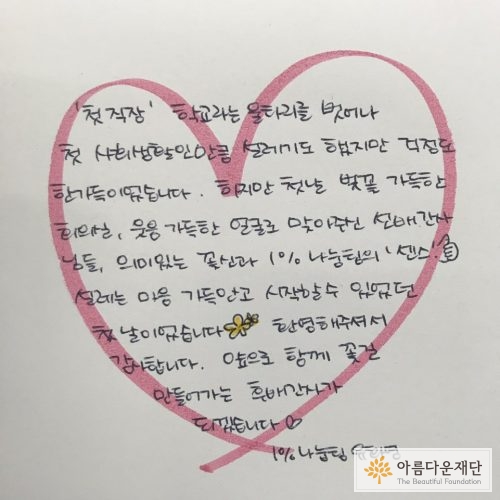 '첫 직장' 학교라는 울타리를 벗어나
첫 사회생활인만큼 설레기도 했지만 걱정도
한가득이었습니다. 하지만 첫날 벚꽃 가득한
회의실, 웃음 가득한 얼굴로 맞아주신 선배간사
님들, 의미있는 꽃신과 1% 나눔팀의 '센스'
설레는 마음 가득안고 시작할 수 있었던
첫 날이었습니다 환영해주셔서
감사합니다. 앞으로 함께 꽃길
만들어가는 후배간사가
되겠습니다♡
1% 나눔팀
아름다운재단
The Beautiful Foundation